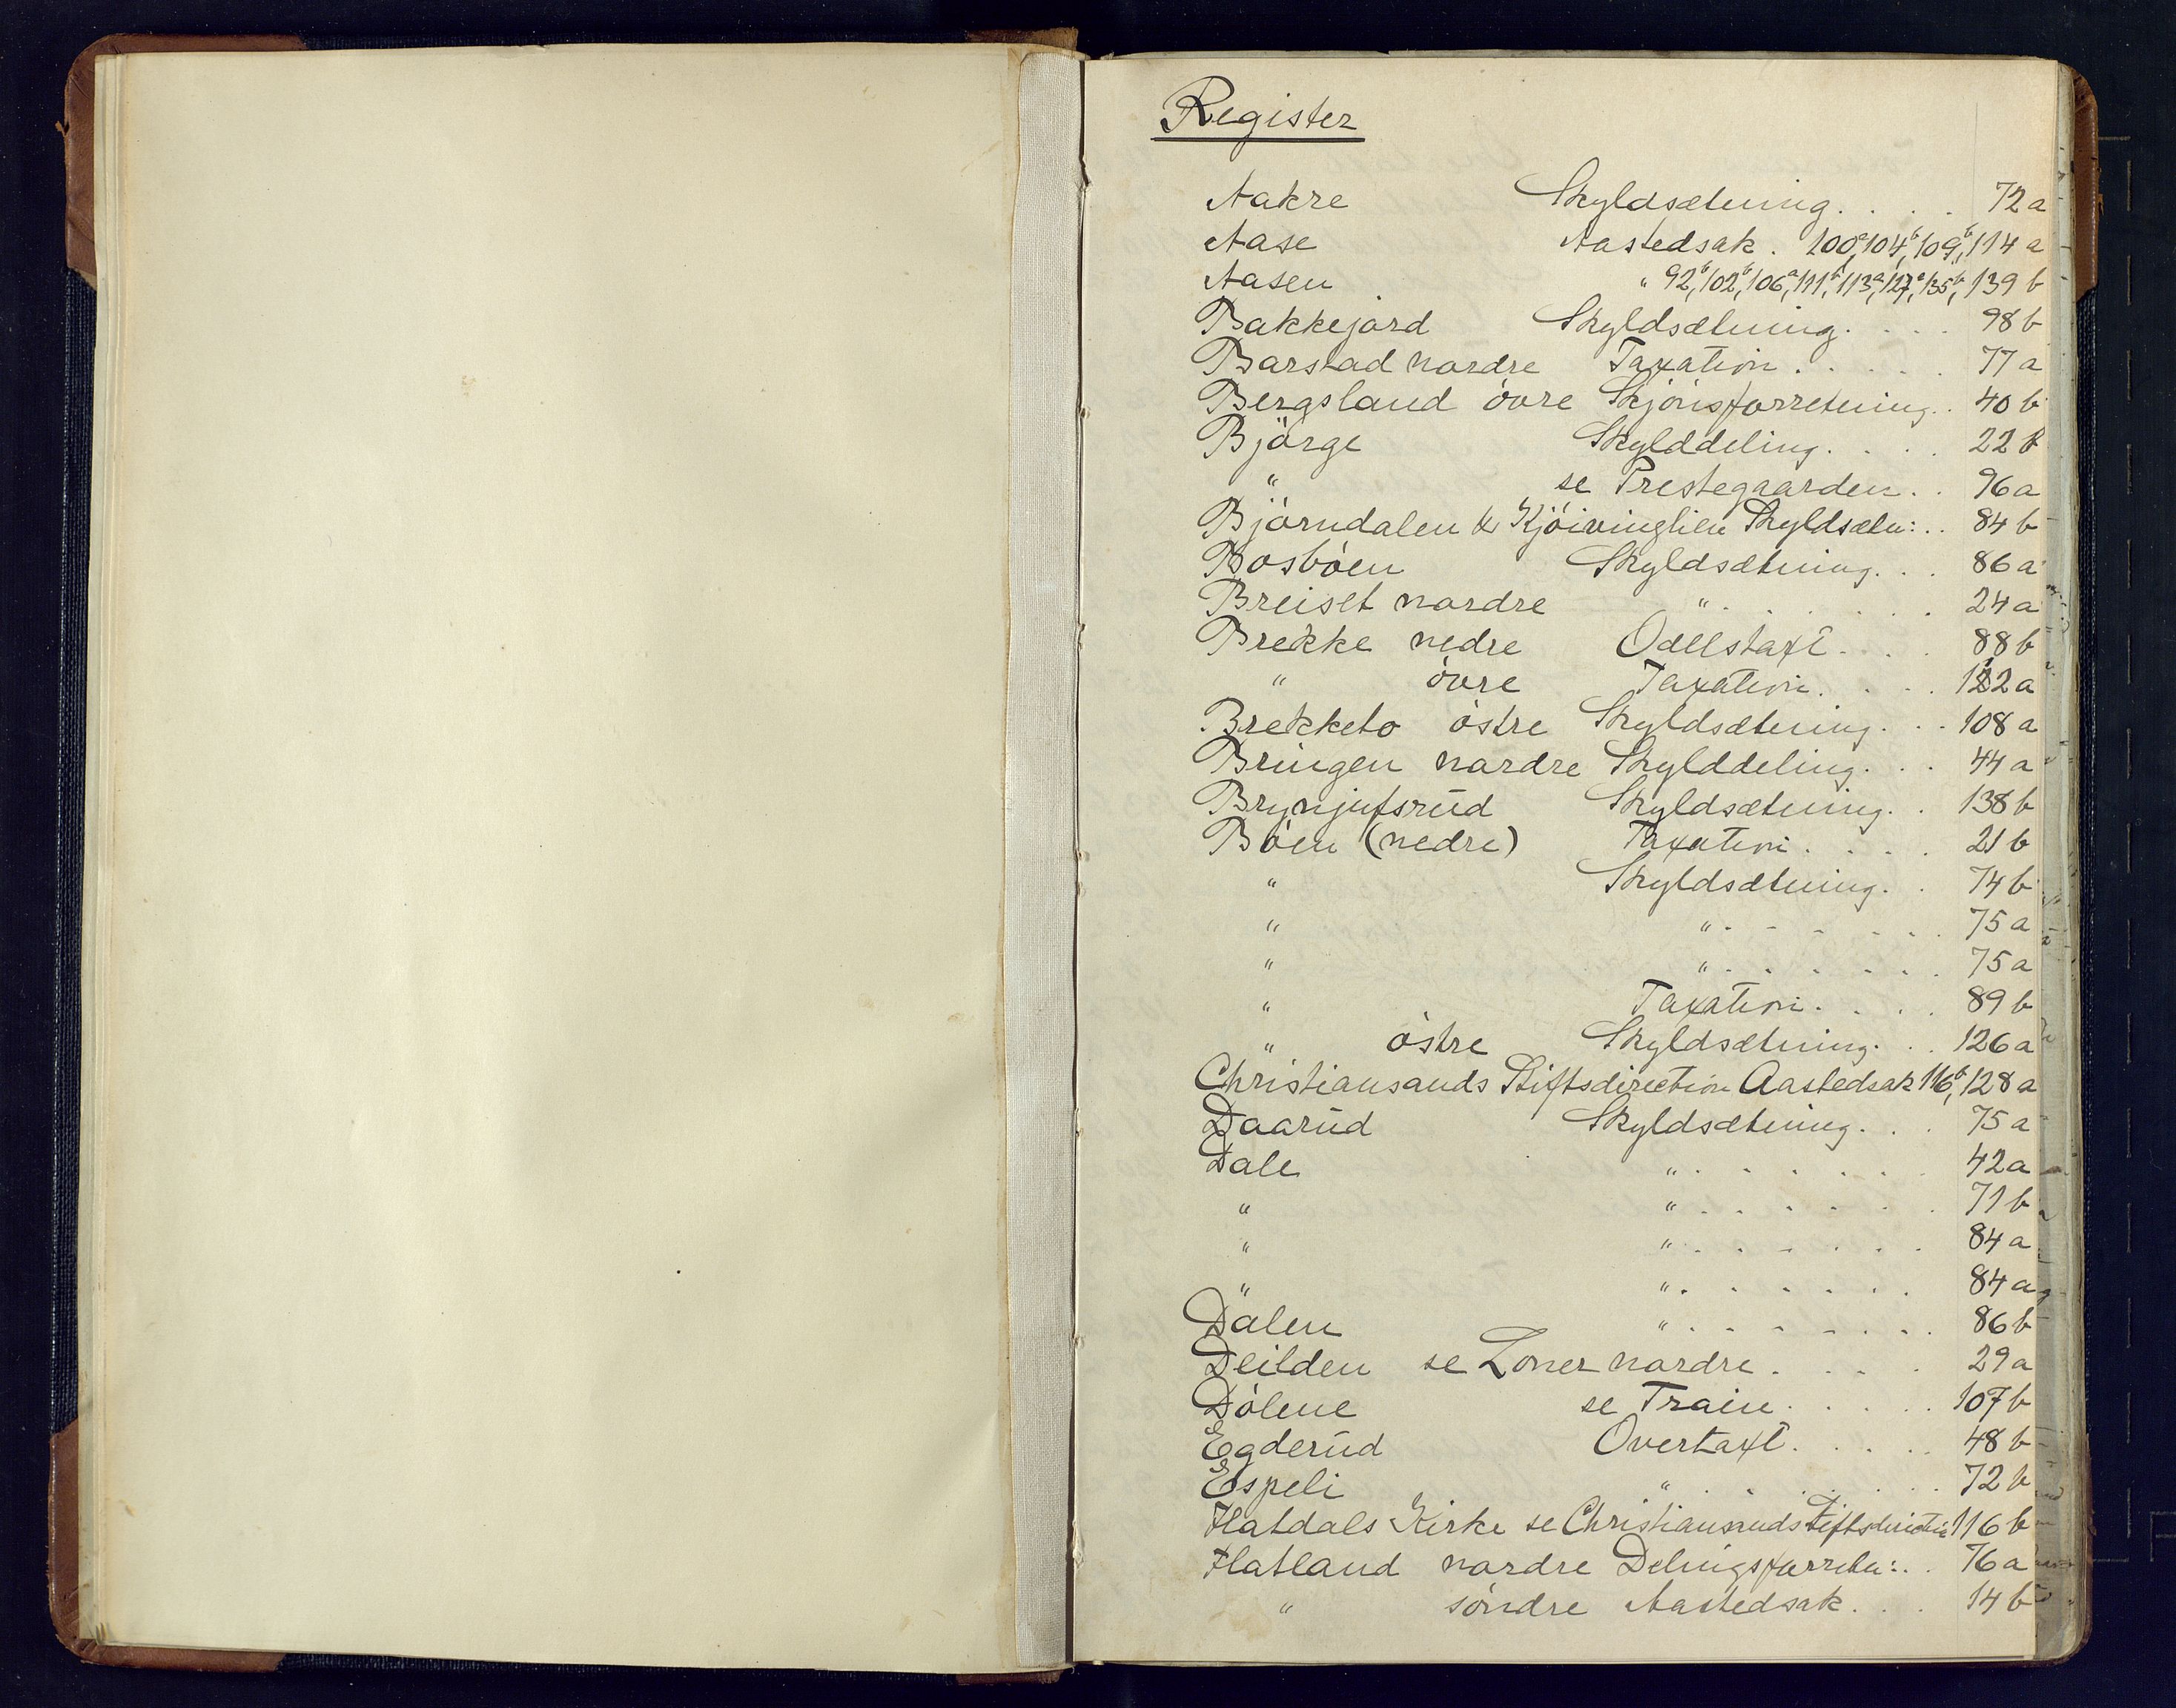 Register
Aakre Skyldsætning. . . . 72 a
Aase Aastedsak. 100a, 104b, 109b, 114 a
Aasen " 92b, 102b, 106a, 111b, 113a, 127a, 135b, 139 b
Bakkejord Skyldsætning. . . . 98 b
Barstad nordre Taxation. . . . . 77 a
Bergsland övre Skjönsforretning. . 40 b
Björge Skylddeling. . . . 22 b
" se Prestegaarden. . 96 a
Björndalen & Kjöivinglien Skyldsætn:. . 84 b
Bosböen Skyldsætning. . . 86 a
Breiset nordre " . . . . . . 24 a
Brekke nedre Odelstaxt. . . . 88 b
" övre Taxation. . . . 112 a
Brekketo östre Skyldsætning. . . 108 a
Bringen nordre Skylddeling. . . 44 a
Brynjufsrud Skyldsætning. . 138 b
Böen (nedre) Taxation. . . . 21 b
" Skyldsætning. . 74 b
" " . . . . . . 75 a
" " . . . . . . 75 a
" Taxation. . . . 89 b
" östre Skyldsætning. . . 126 a
Christiansands Stiftsdirection Aastedsak 116b, 128 a
Daarud Skyldsætning. . . 75 a
Dale " . . . . . . 42 a
" " . . . . . . 71 b
" " . . . . . . 84 a
" " . . . . . . 84 a
Dalen " . . . . . . . 86 b
Deilden se Loner nordre. . . . 29 a
Dölene se Traen. . . . . 107 b
Egderud Overtaxt. . . . . 48 b
Espeli " . . . . . . 72 b
Flatdals Kirke se Christiansands Stiftsdirection 116 b
Flatland nordre Delingsforretn:. . 76 a
" söndre Aastedsak. . . 14 b